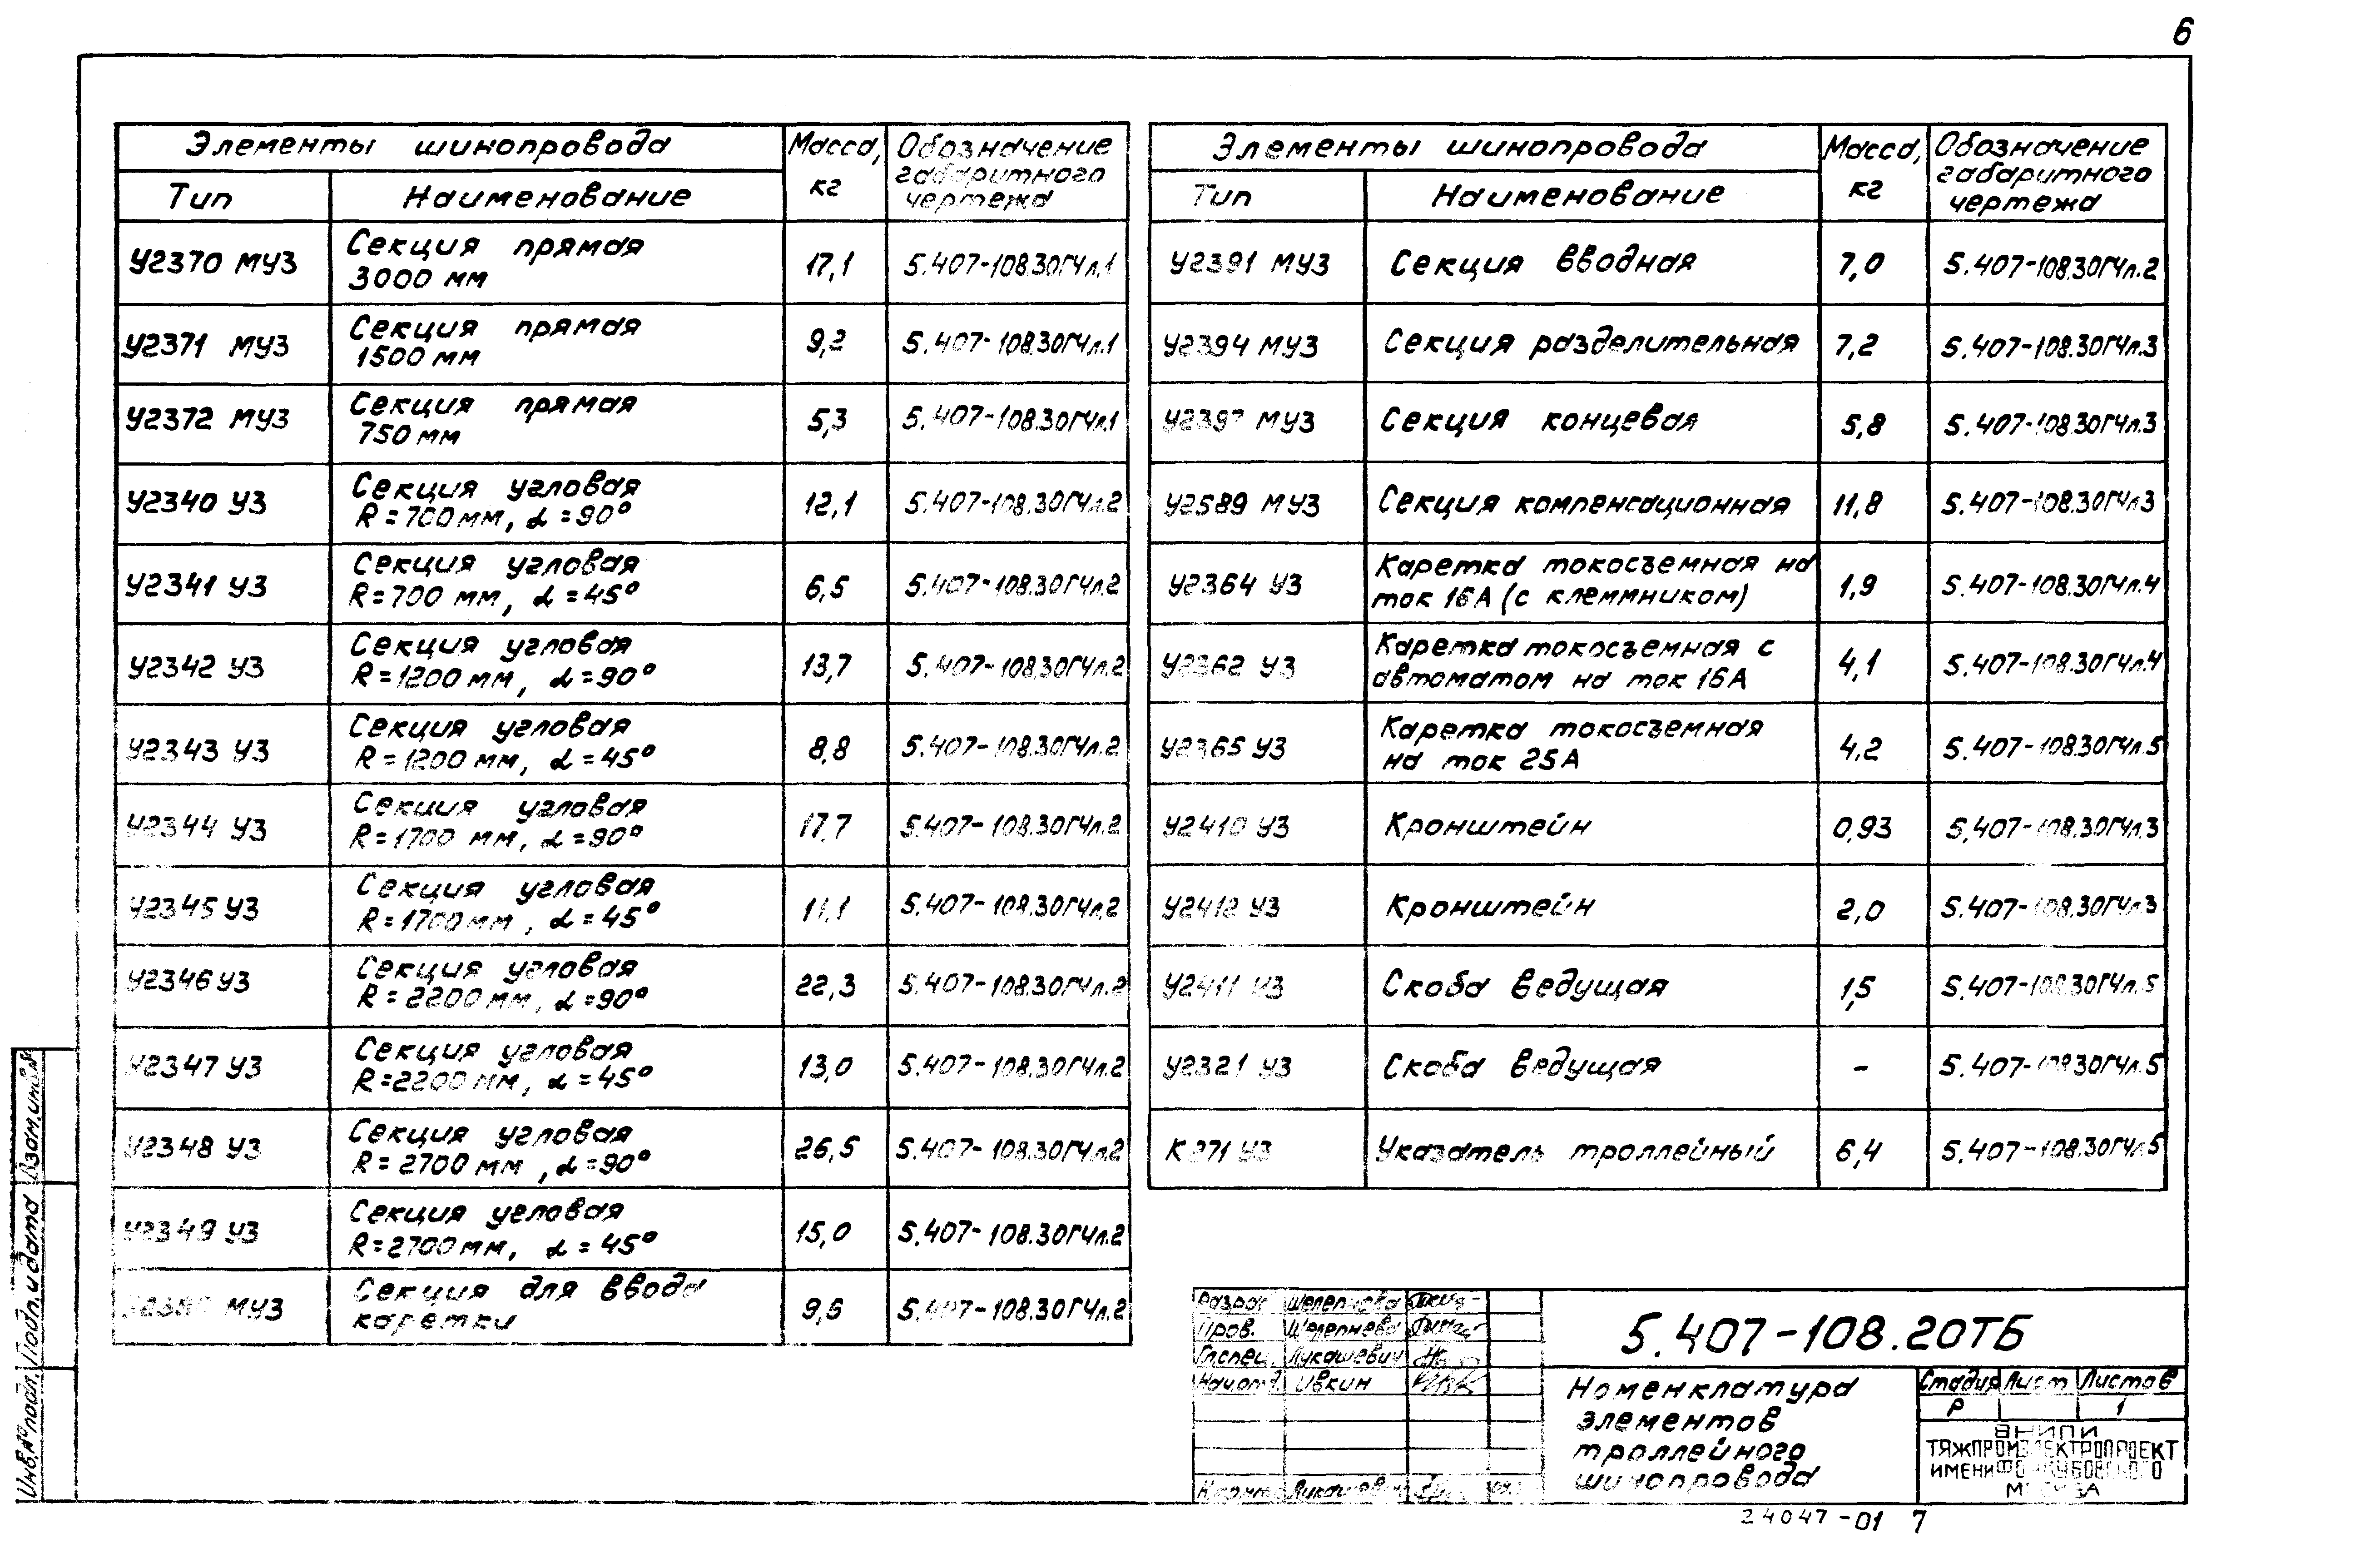 6
Элементы шинопровода
Масса, кг
Обозначение габаритного чертежа
Тип
Наименование
У2370 МУ3 Секция прямая 3000 мм 17,1 5.407-108.30ГЧл.1
У2371 МУ3 Секция прямая 1500 мм 9,2 5.407-108.30ГЧл.1
У2372 МУ3 Секция прямая 750 мм 5,3 5.407-108.30ГЧл.1
У2340 У3 Секция угловая R=700 мм, α=90° 12,1 5.407-108.30ГЧл.2
У2341 У3 Секция угловая R=700 мм, α=45° 6,5 5.407-108.30ГЧл.2
У2342 У3 Секция угловая R=1200 мм, α=90° 13,7 5.407-108.30ГЧл.2
У2343 У3 Секция угловая R=1200 мм, α=45° 8,8 5.407-108.30ГЧл.2
У2344 У3 Секция угловая R=1700 мм, α=90° 17,7 5.407-108.30ГЧл.2
У2345 У3 Секция угловая R=1700 мм, α=45° 11,1 5.407-108.30ГЧл.2
У2346 У3 Секция угловая R=2200 мм, α=90° 22,3 5.407-108.30ГЧл.2
У2347 У3 Секция угловая R=2200 мм, α=45° 13,0 5.407-108.30ГЧл.2
У2348 У3 Секция угловая R=2700 мм, α=90° 26,5 5.407-108.30ГЧл.2
У2349 У3 Секция угловая R=2700 мм, α=45° 15,0 5.407-108.30ГЧл.2
МУ3 Секция для ввода каретки 9,6 5.407-108.30ГЧл.2
Элементы шинопровода
Масса, кг
Обозначение габаритного чертежа
Тип
Наименование
У2391 МУ3 Секция вводная 7,0 5.407-108.30ГЧл.2
У2394 МУ3 Секция разделительная 7,2 5.407-108.30ГЧл.3
У2397 МУ3 Секция концевая 5,8 5.407-108.30ГЧл.3
У2589 МУ3 Секция компенсационная 11,8 5.407-108.30ГЧл.3
У2364 У3 Каретка токосъемная на ток 16А (с клеммником) 1,9 5.407-108.30ГЧл.4
У2362 У3 Каретка токосъемная с автоматом на ток 16А 4,1 5.407-108.30ГЧл.4
У2365 У3 Каретка токосъемная на ток 25А 4,2 5.407-108.30ГЧл.5
У2410 У3 Кронштейн 0,93 5.407-108.30ГЧл.3
У2412 У3 Кронштейн 2,0 5.407-108.30ГЧл.3
У2411 У3 Скоба ведущая 1,5 5.407-108.30ГЧл.5
У2321 У3 Скоба ведущая - 5.407-108.30ГЧл.5
К271 У3 Указатель троллейный 6,4 5.407-108.30ГЧл.5
Разраб. Шелепнева
Пров. Шелепнева
Гл.спец. Лукашевич
Нач.отд. Ивкин
5.407-108.20ТБ
Номенклатура
элементов
троллейного
шинопровода
Стадия Лист Листов
Р 1
ВНИПИ
ТЯЖПРОМЭЛЕКТРОПРОЕКТ
ИМЕНИ Ф.Б.ЯКУБОВСКОГО
МОСКВА
24047-01 7
Инв.№ подл. Подп. и дата Взам.инв.№